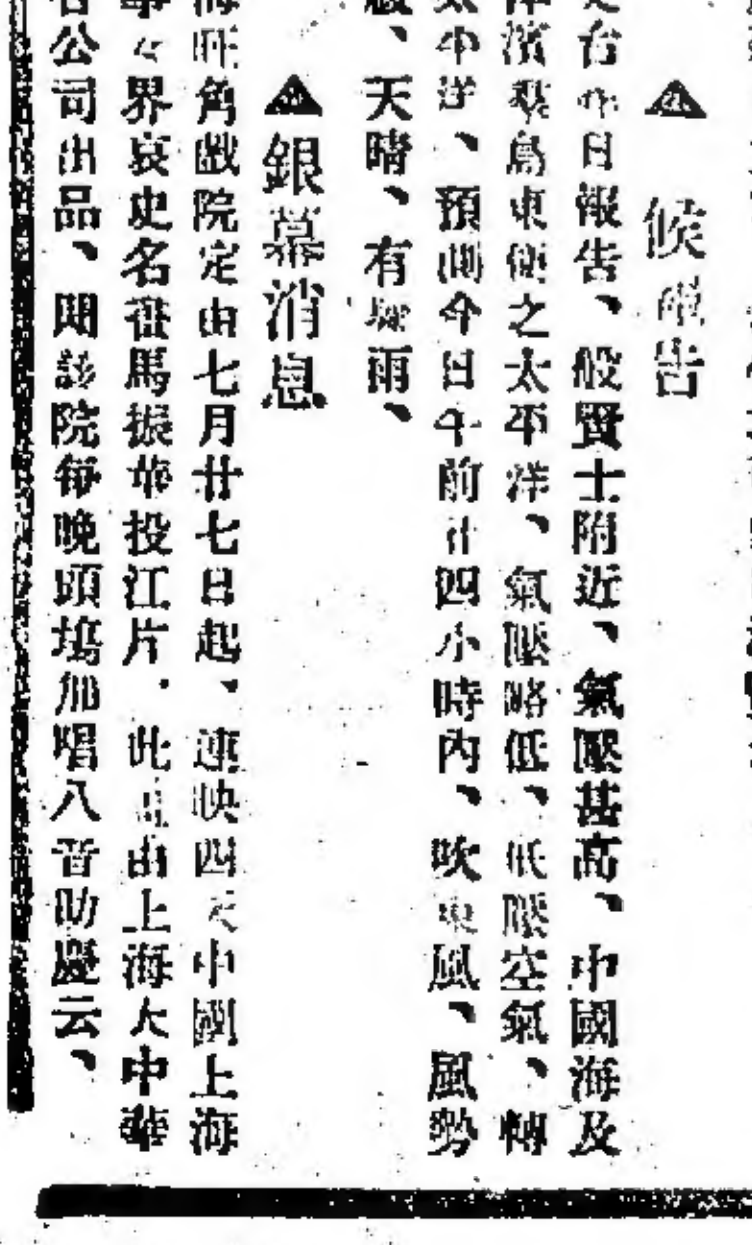 ▲候電告
台今日報告、般賢士附近、氣壓甚高、中國海及
濱羣島東便之太平洋、氣壓略低、低壓空氣、轉
太平洋、預測今日午前廿四小時內、吹東風、風勢
、天晴、有驟雨、
▲銀幕消息
海旺角戲院定由七月廿七日起、連映四天中國上海
界哀史名晉馬振華投江片．此片由上海大中華
公司出品、聞該院每晚頭塲加唱八音助慶云、